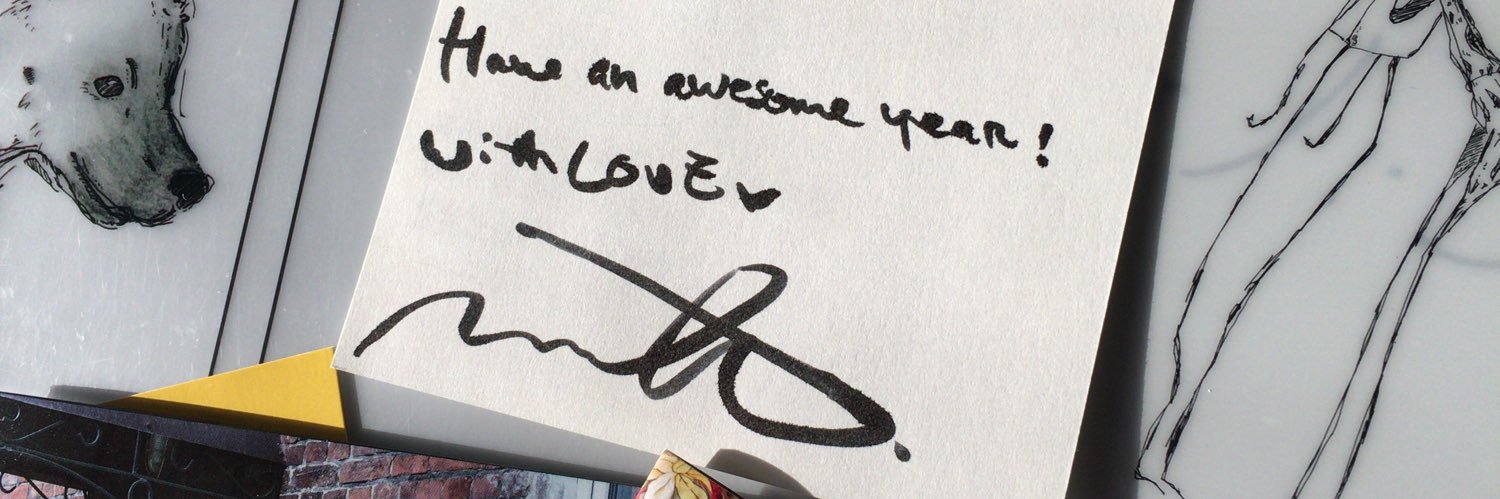 Have an awesome year!
with LOVE♥